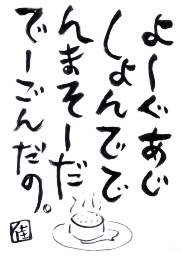 よーぐあじ
しょんでで
んまそーだ
でーごんだの。
佳